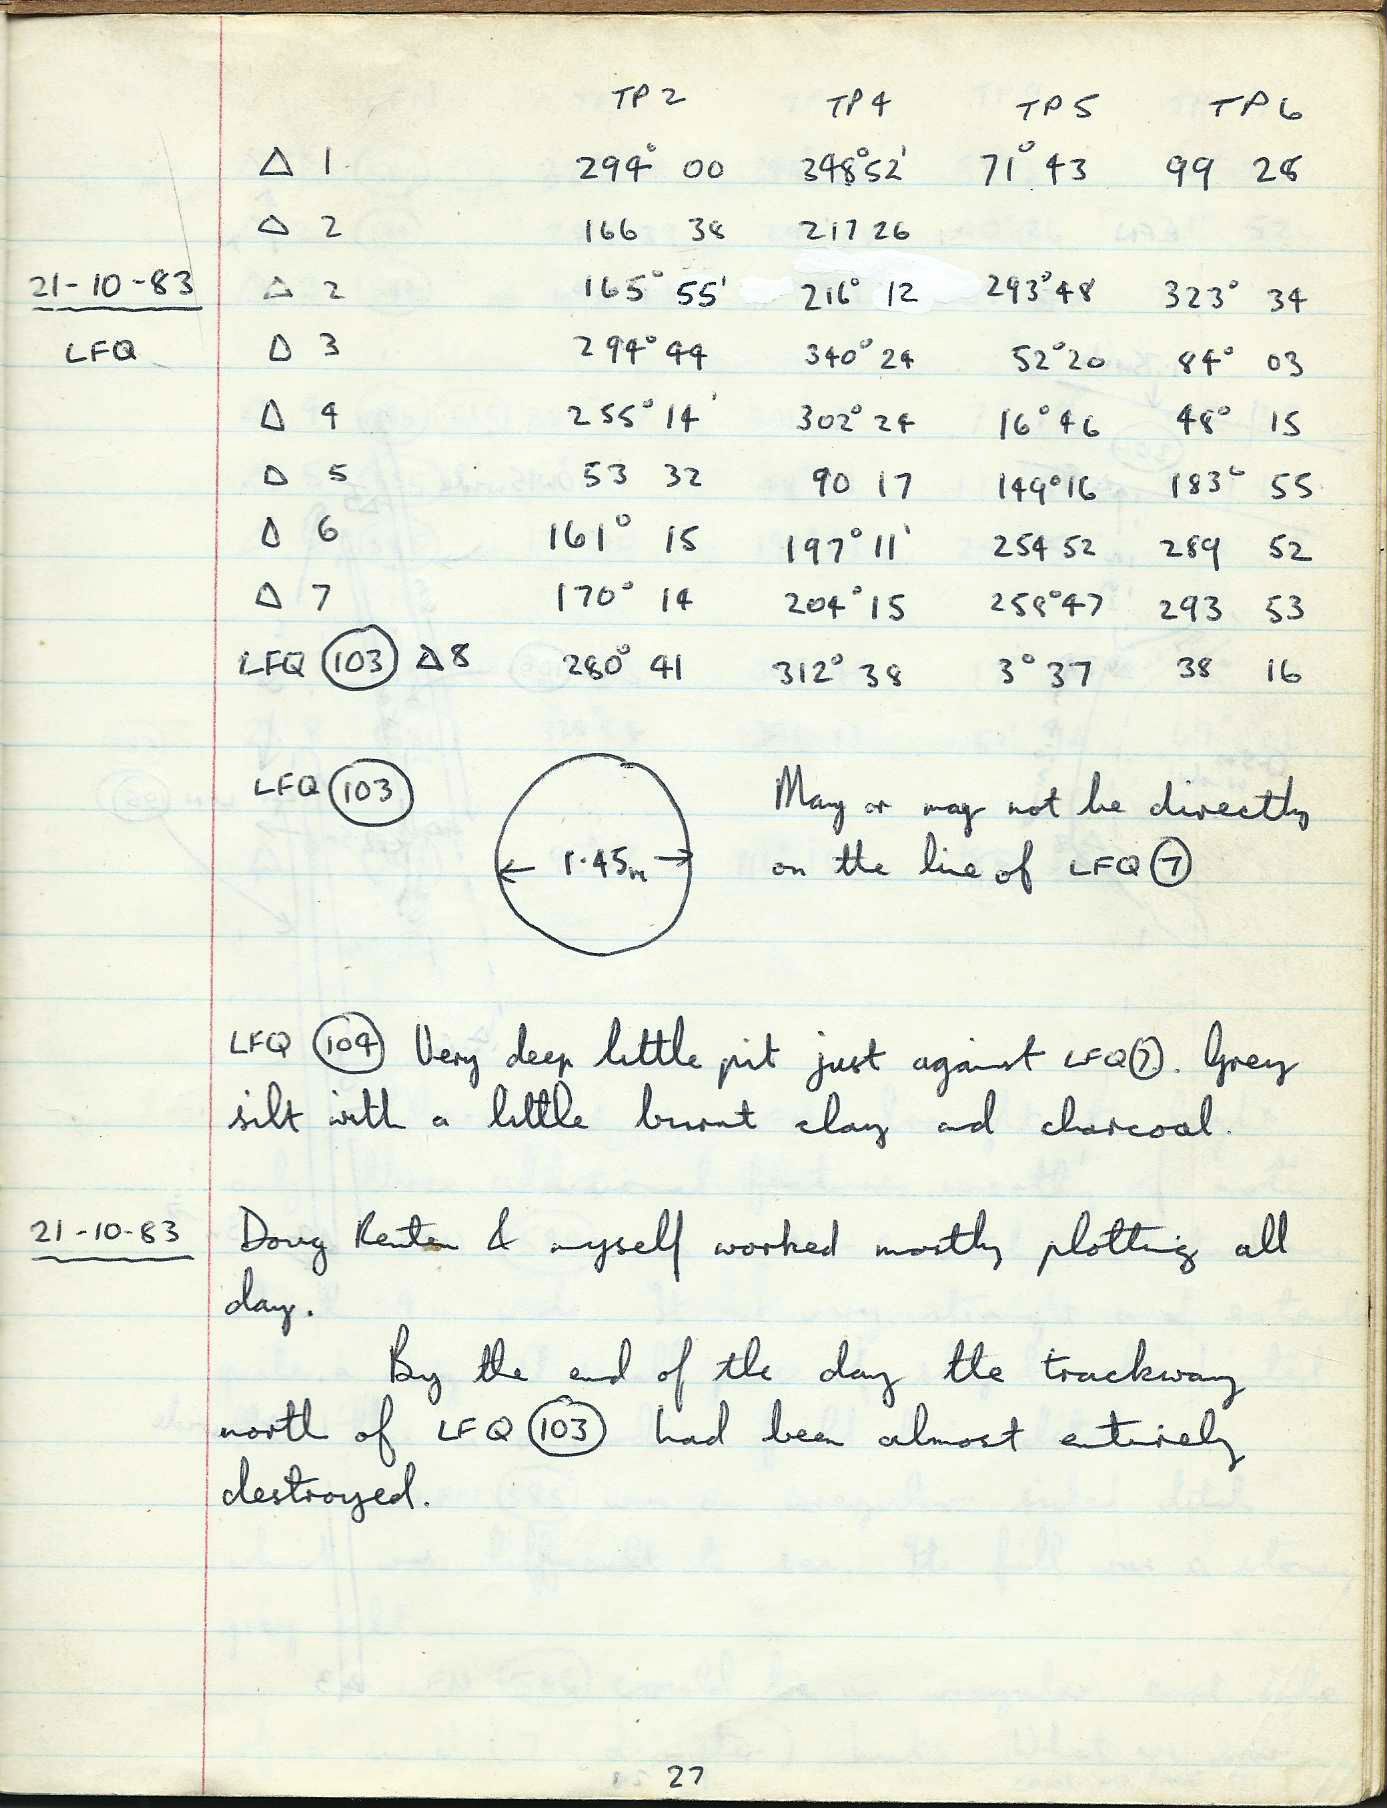 TP 2 TP 4 TP 5 TP 6
Δ 1 294° 00 348° 52' 71° 43 99 28
Δ 2 166 38 217 26
21-10-83 Δ 2 165° 55' 216° 12 293° 48 323° 34
LFQ Δ 3 294° 44 340° 24 52° 20 84° 03
Δ 4 255° 14' 302° 24 16° 46 48° 15
Δ 5 53 32 90 17 149° 16 183° 55
Δ 6 161° 15 197° 11' 254 52 289 52
Δ 7 170° 14 204° 15 258° 47 293 53
LFQ 103 Δ 8 280° 41 312° 38 3° 37 38 16
LFQ 103 May or may not be directly
1.45m on the line of LFQ 7
LFQ 104 Very deep little pit just against LFQ 7. Grey
silt with a little burnt clay and charcoal.
21-10-83 Doug Renten & myself worked mostly plotting all
day.
By the end of the day the trackway
north of LFQ 103 had been almost entirely
destroyed.
27